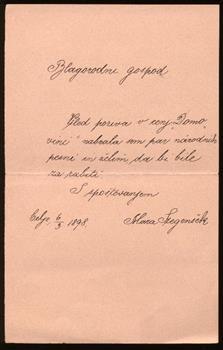 Blagorodni gospod
Vsled poziva v cenj. „Domo
vini" nabrala sem par národnih
pesni in želim, da bi bile
za rabiti.
S spoštovanjem
Celje 6/3 1898. Mara